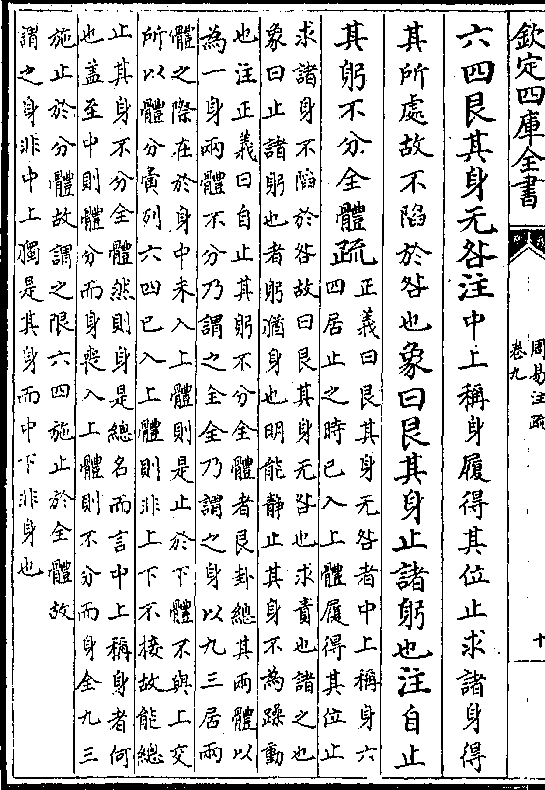 欽定四庫全書
周易注疏
卷九
十
六四艮其身无咎注中上稱身履得其位止求諸身得
其所處故不陷於咎也象曰艮其身止諸躬也注自止
其躬不分全體疏
正義曰艮其身无咎者中上稱身六
四居止之時已入上體履得其位止
求諸身不陷於咎故曰艮其身无咎也求責也諸之也
象曰止諸躬也者躬猶身也明能靜止其身不為躁動
也注正義曰自止其躬不分全體者艮卦總其兩體以
為一身兩體不分乃謂之全全乃謂之身以九三居兩
體之際在於身中未入上體則是止於下體不與上交
所以體分夤列六四已入上體則非上下不接故能總
止其身不分全體然則身是總名而言中上稱身者何
也蓋至中則體分而身喪入上體則不分而身全九三
施止於分體故謂之限六四施止於全體故
謂之身非中上獨是其身而中下非身也